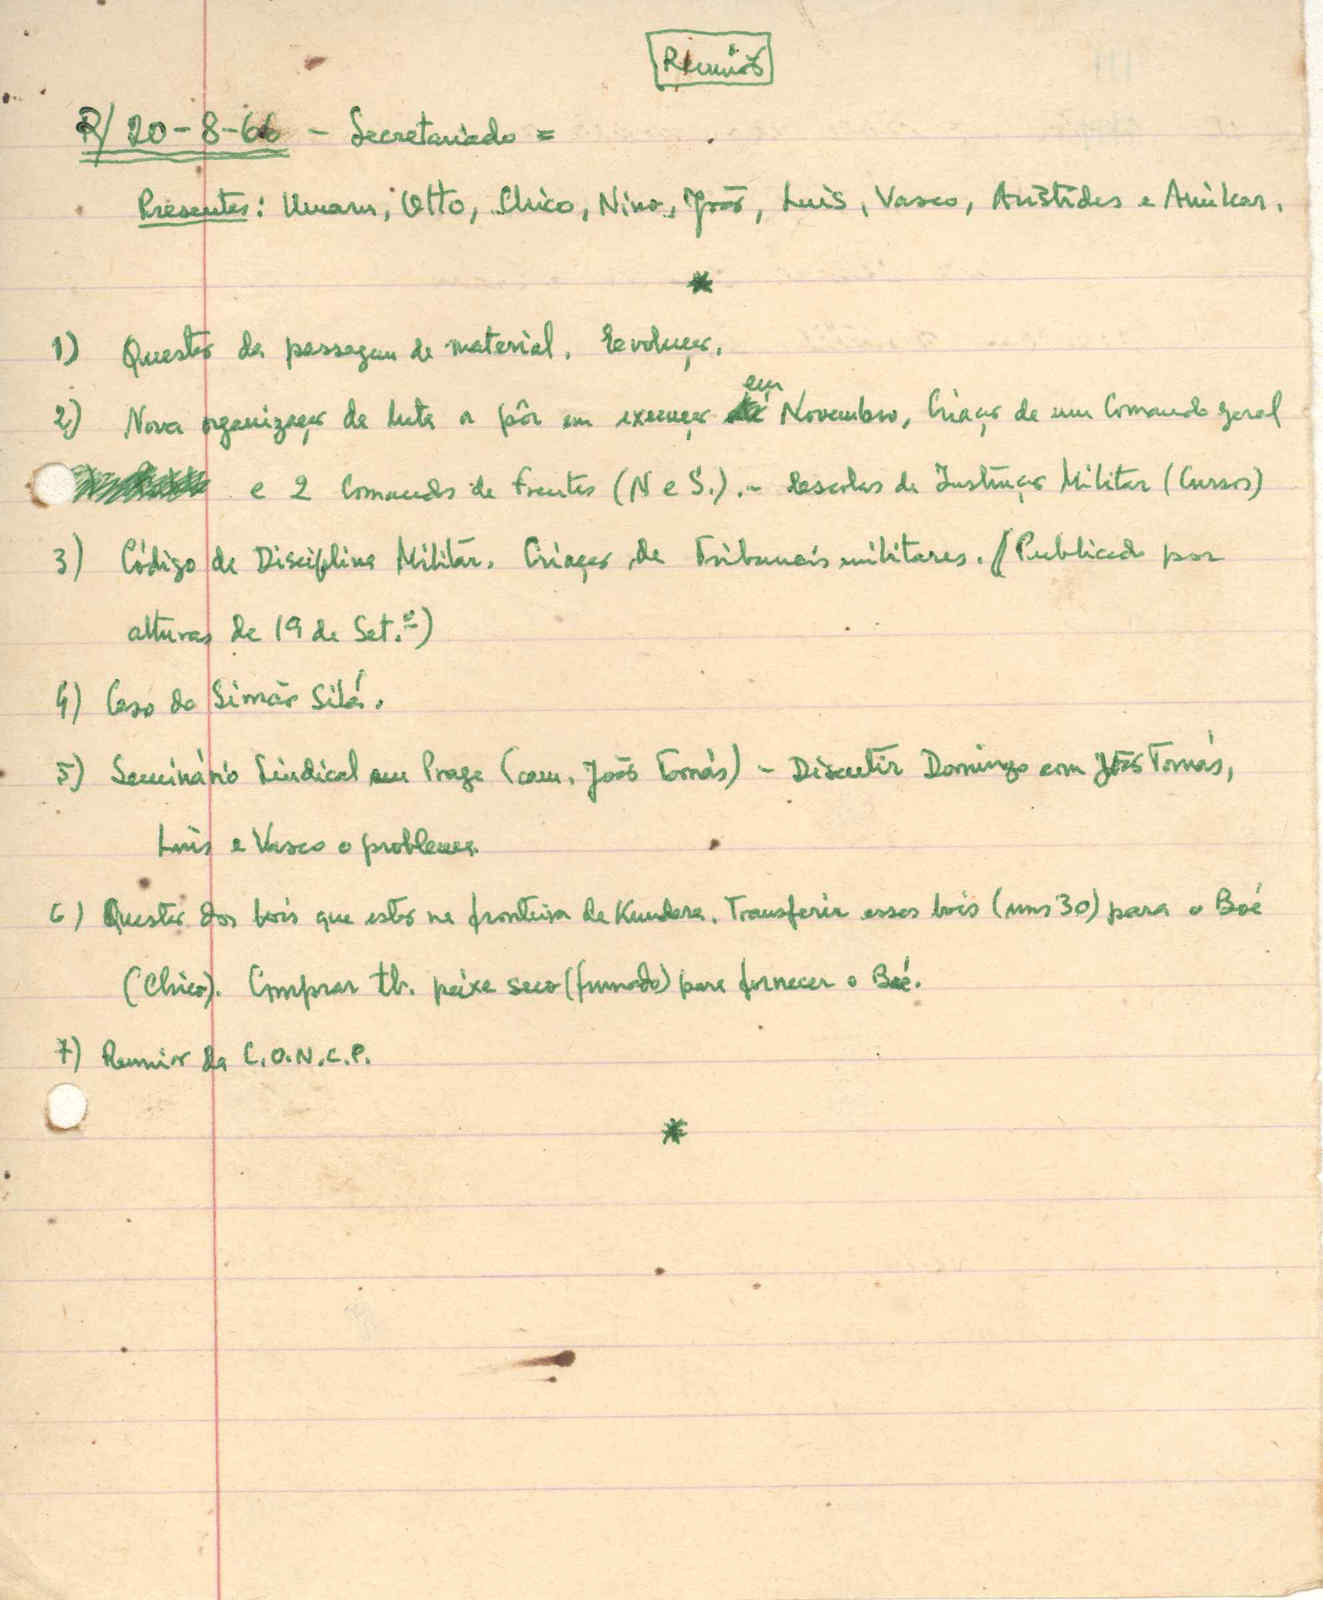 Reunião
R/ 20-8-66 - Secretariado =
Presentes: Umaru, Otto, Chico, Nino, João, Luís, Vasco, Aristides e Amílcar.
*
1) Questão da passagem de material. Evolução.
em
2) Nova organização da luta a pôr em execução Novembro, Criação de um Comando geral
e 2 Comandos de Frentes (N e S.). - Escolas de Instrução Militar (Cursos)
3) Código de Disciplina Militar. Criação de Tribunais militares. (Publicado por
alturas de 19 de Set.º)
4) Caso do Simão Silá.
5) Seminário Sindical em Praga (cam. João Tomás) - Discutir Domingo com João Tomás,
Luís e Vasco o problema.
6) Questão dos bois que estão na fronteira de Kundara. Transferir esses bois (uns 30) para o Boé
(Chico). Comprar tb. peixe seco (fumado) para fornecer o Boé.
7) Reunião da C.O.N.C.P.
*